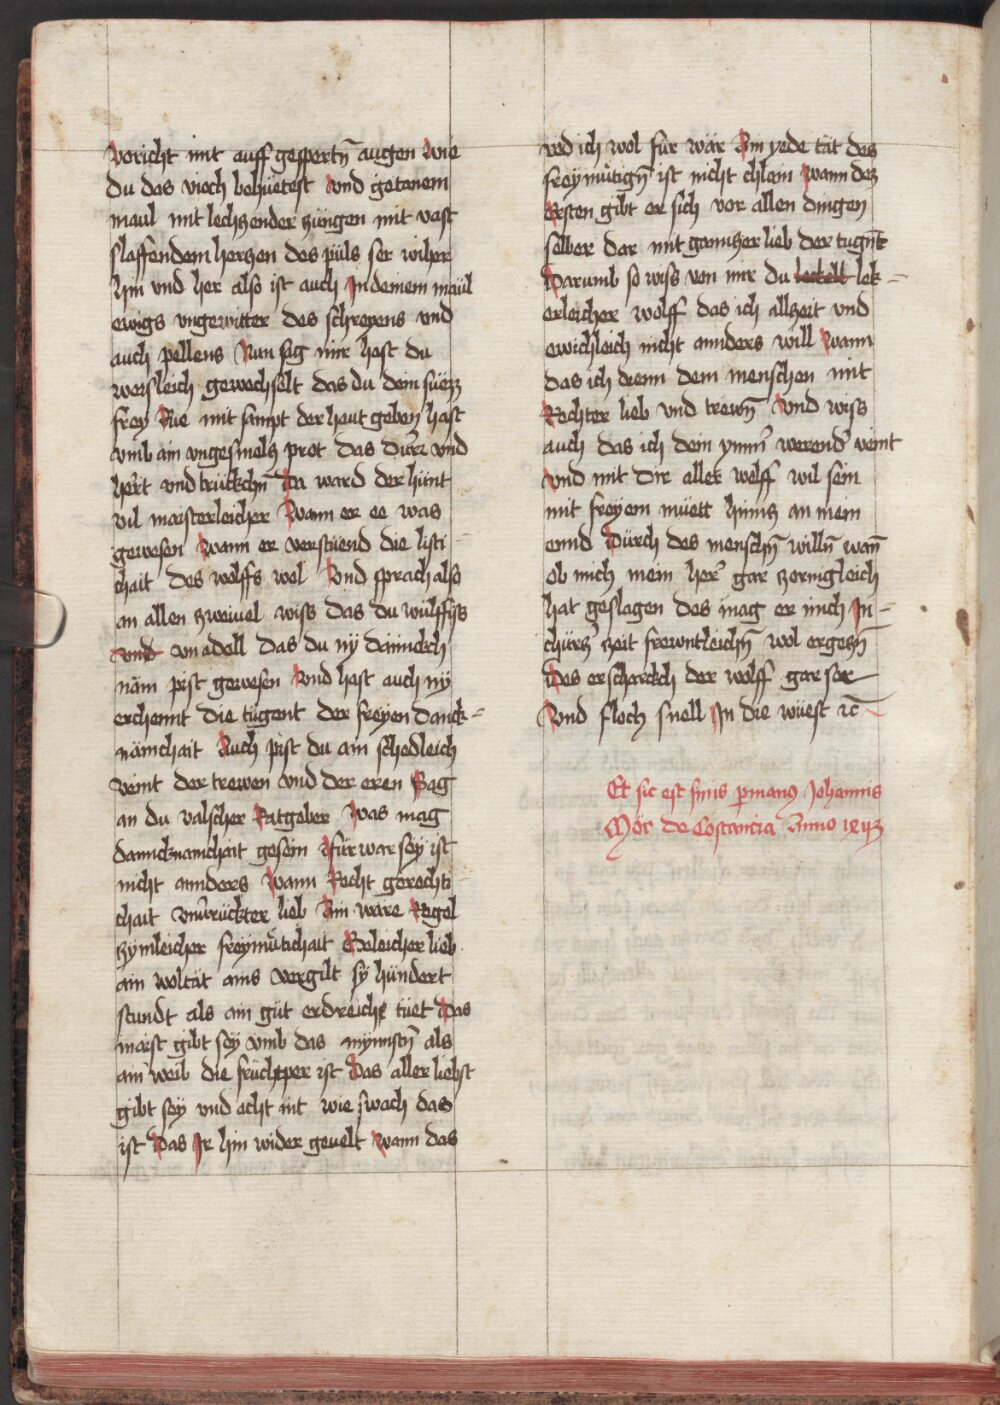 voricht mit auff gesperrtn̄ augen Wie
du das viech behüetest vnd getanem
maul mit lechzender züngen mit vast
slaffendem herczen des püls ser wiher
hin vnd her also ist auch Jn deinem maül
ewigs vngewitter des schreyens vnd
auch pellens Nun sag mir hast du
weisleich gewechselt das du dein süezz
frey Rue mit sampt der heut geben hast
vmb ain vngesmelcz prot das dürr vnd
hert vnd trückchn̄ Da ward der hünt
vil maisterleicher Wann er ee was
gewesen Wann er verstuend die listi
chait des wolffs wol Vnd sprach also
an allen zweiuel wiss das du wülffiss
vnd vn adell Das du nÿ dännckch
näm pist gewesen Vnd hast auch nÿ
erchennt die tügent der freyen danck-
nämchait Auch pist du ain schedleich
veint der trewen vnd der eren Sag
an du valscher Ratgeber Was mag
dancknamchait gesein Für war sey ist
nicht annders Wann Recht gerechti
chait vnuerrückter lieb Ain ware Regel
zymleicher freymütichait Geleicher lieb
ain woltat ains vergilt sÿ hündert
stundt als ain güt erdreich tüet Das
maist gibt sey vmb das mynnstn̄ als
ain weib die früchtper ist Das aller liebst
gibt sey vnd acht nit wie swach das
ist Das Jr hin wider geuelt Wann das
red ich wol für wär Ain yede tät des
freymütign̄ ist nicht chlain Wann dez
Ersten gibt er sich vor allen dingen
selber dar mit gannczer lieb der tugnt
Darumb so wiss von mir du lek-
erleicher wolff das ich allzeit vnd
ewichleich nicht annders will Wann
das ich dienn dem menschen mit
Rechter lieb vnd trewn̄ Vnd wiss
auch das ich dein ymmer werender veint
Vnd mit dir aller wolff wil sein
mit freyem müett hinncz an mein
ennd Dürch des menschn̄ willn̄ wan̄
ob mich mein her gar zornigleich
hat geslagen des mag er mich Jn-
chürczer zeit frewntleichn̄ wol ergeczn̄
Des erschrackch der wolff gar ser
Vnd floch snell Jn die wüest ꝛc̄
Et sic est finis ꝑ manꝰ Johannis
Mör de Costancia Anno